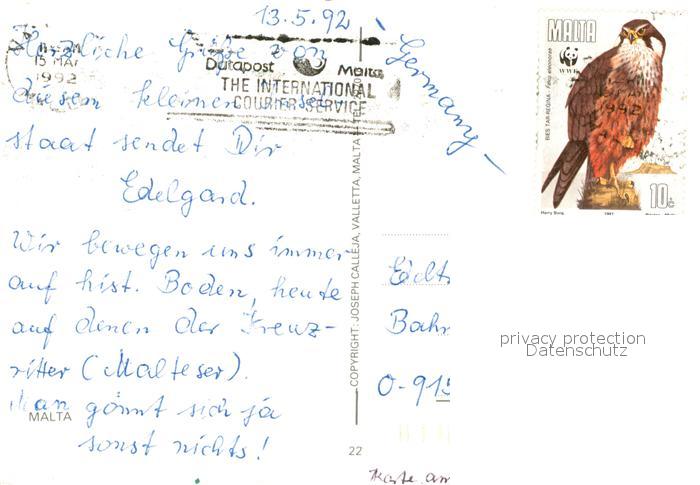 13.5.92
Herzliche Grüße von
diesem kleinen Insel-
staat sendet Dir
Edelgard.
Wir bewegen uns immer
auf hist. Boden, heute
auf denen der Kreuz-
ritter (Malteser).
Man gönnt sich ja
sonst nichts!
MALTA
15 MAY
1992
Datapost Malta
THE INTERNATIONAL
COURIER SERVICE
Germany
COPYRIGHT: JOSEPH CALLEJA, VALLETTA, MALTA
22
MALTA
WWF
BIES TAR-REGINA - Falco eleonorae
10c
Harry Borg
1991
Edt
Bahn
O-915
Karte am
privacy protection
Datenschutz